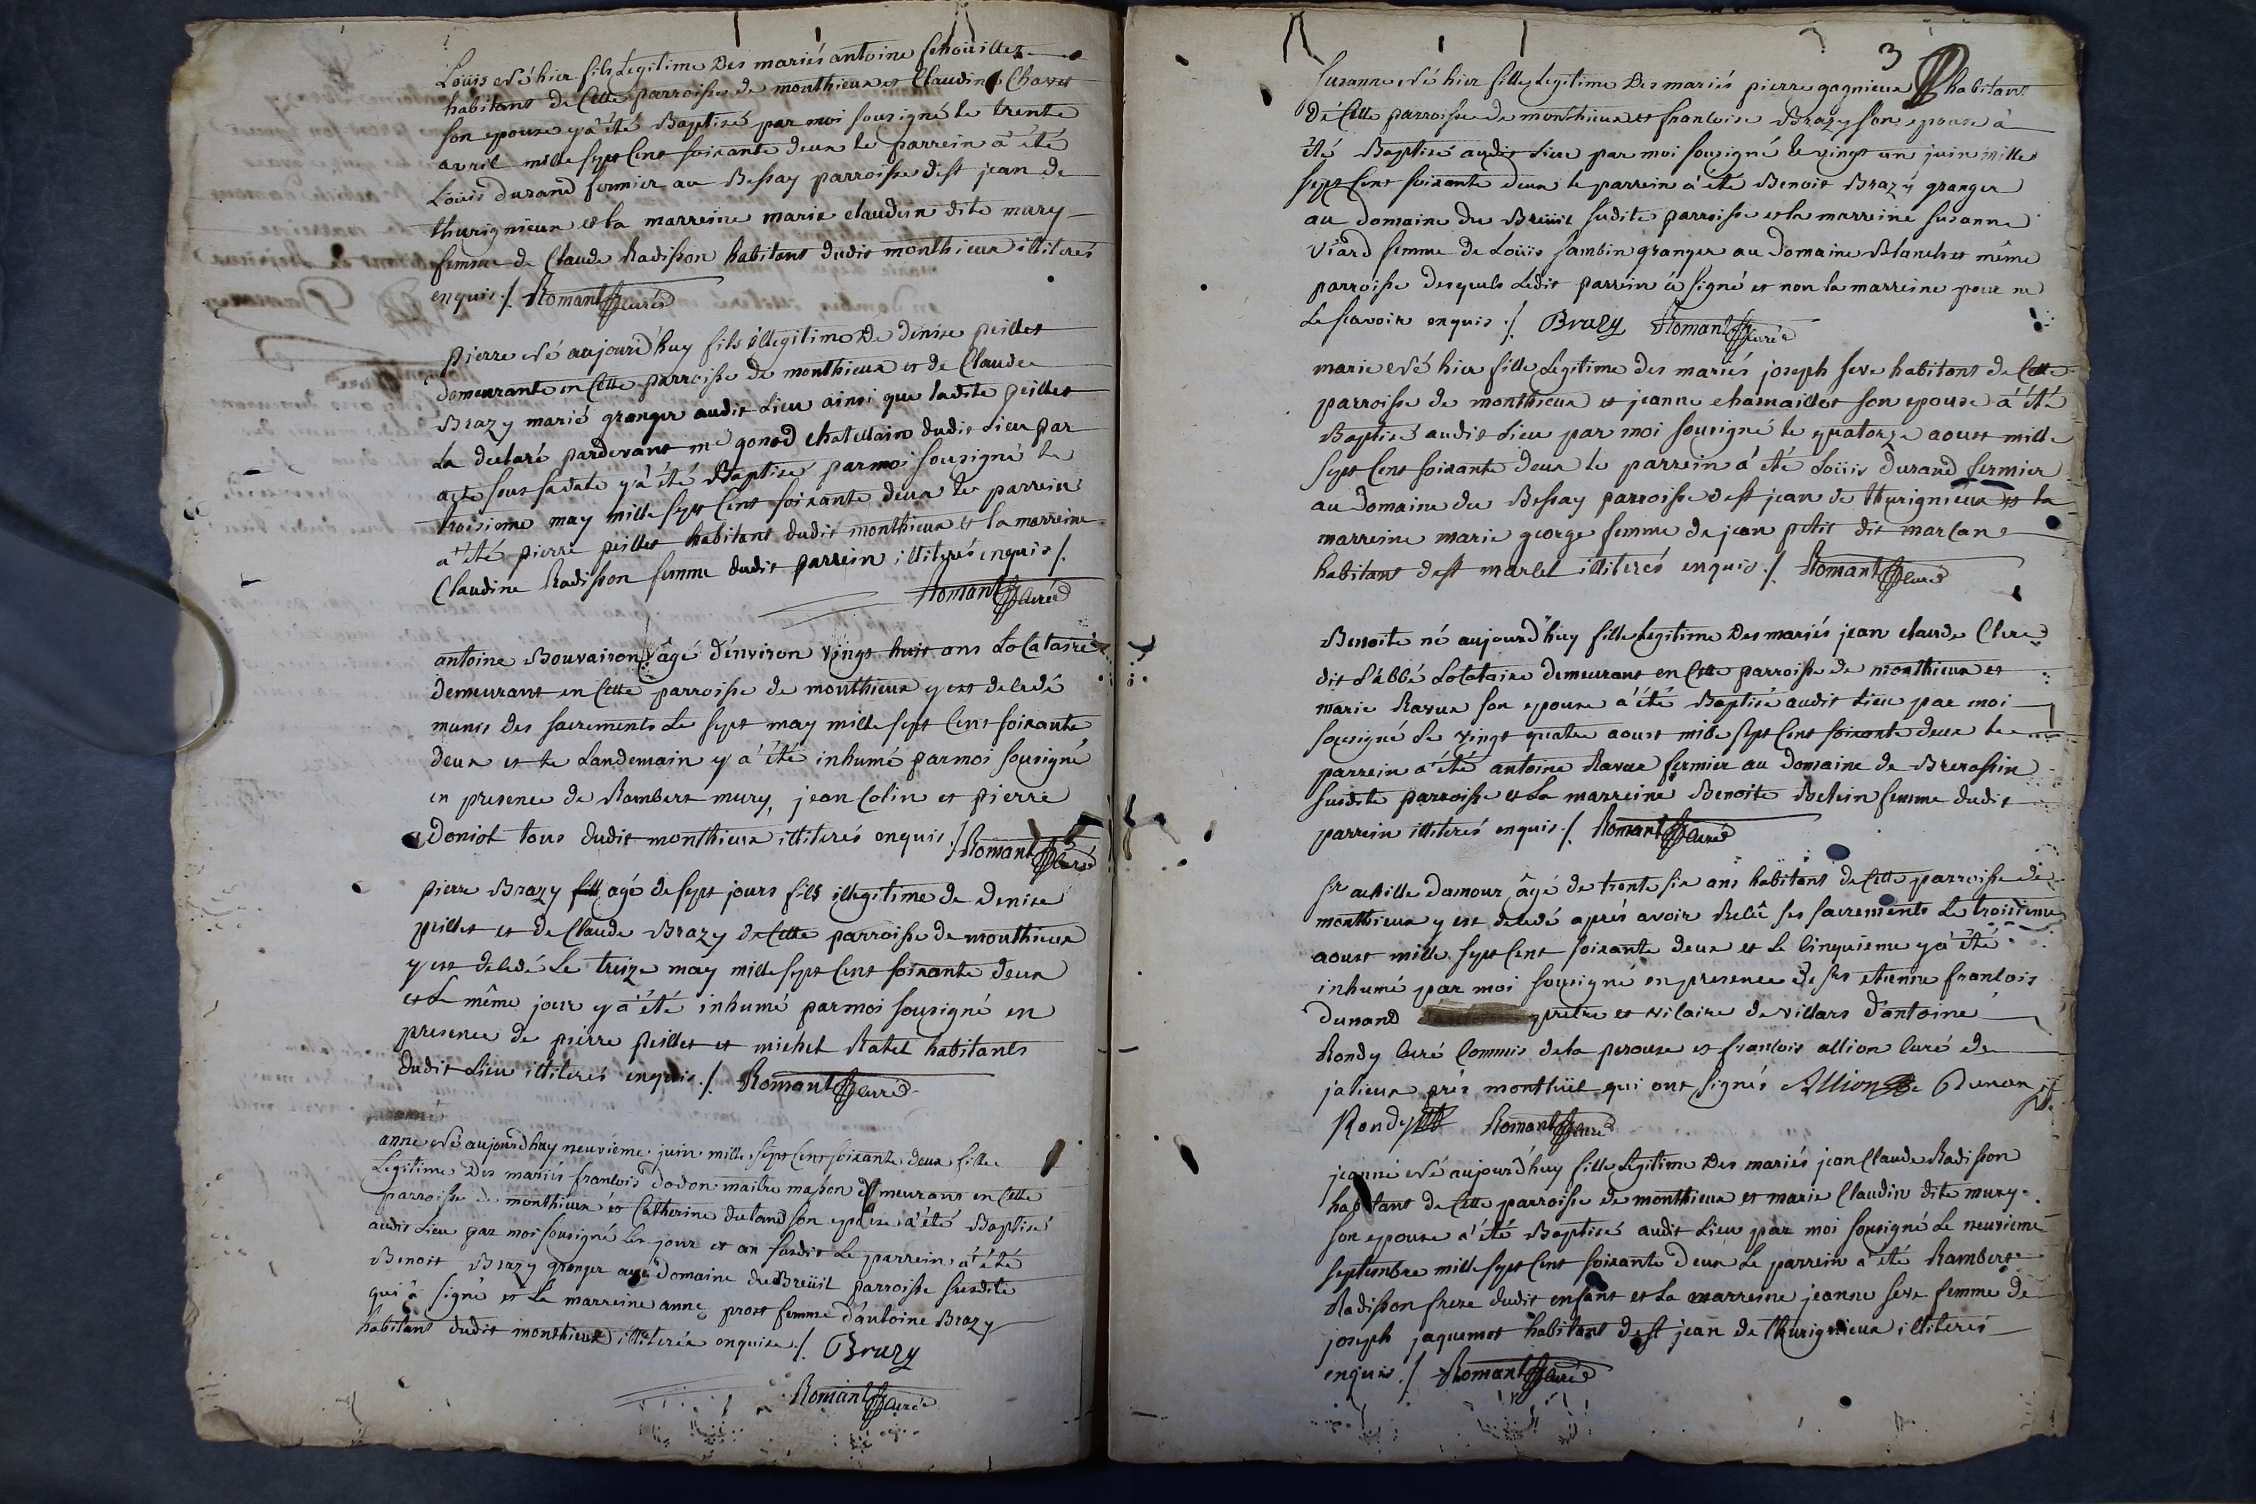 Loüis né hier fils Legitime Des mariés antoine
habitant de Cette parroisse de monthieux et Claudine Chavet
son epouse y à été Baptisé par moi sousigné le trente
avril mille sept Cent soixante deux le parrein à été
Loüis durand fermier au Bessay parroisse dest jean de
thurignieux et la marreine marie claudin dite mury
femme de Claude Radisson habitant dudit monthieux illiterés
enquis ./. Romant Curé
pierre né aujourd'huy fils illegitime De denise peillet
demeurante en Cette parroisse de monthieux et de Claude
Brazy marié granger audit Lieu ainsi que ladite peillet
La declaré pardevant me gonod chatellain dudit Lieu par
acte sous sa date y à été Baptisé par moi sousigné le
troisieme may mille sept Cent soixante deux le parrein
a été pierre peillet habitant dudit monthieux et la marreine
Claudine Radisson femme dudit parrein illiterés enquis /.
Romant Curé
antoine Bouvairon âgé d'environ vingt huit ans LoCataire
demeurant en Cette parroisse de monthieux y est decedé
munis des sacrements Le sept may mille sept Cent soixante
deux et le Landemain y à été inhumé par moi sousigné
en presence de Rambert mury, jean Colin et pierre
Doniot tous dudit monthieux illiterés enquis ./. Romant Curé
pierre Brazy agé de sept jours fils illegitime de denise
peillet et de Claude Brazy de Cette parroisse de monthieux
y est decedé Le treize may mille sept Cent soixante deux
et Le même jour y à été inhumé par moi sousigné en
presence de pierre peillet et michel Ratel habitants
dudit Lieu illiterés enquis ./. Romant Curé
anne né aujourd'huy neuvieme juin mille sept Cent soixante deux fille
Legitime Des mariés francois dodon maitre masson demeurant en Cette
parroisse de monthieux et Catherine dutand son epouse à été Baptisé
audit Lieu par moi sousigné Les jour et an susdit Le parrein à été
Benoit Brazy granger au Domaine du Breüil parroisse susdite
qui à signé et La marreine anne prost femme d'antoine Brazy
habitant dudit monthieux illiterée enquise ./. Brazy
Romant Curé
3
Susanne né hier fille Legitime Des mariés pierre gagnieux habitant
De Cette parroisse de monthieux et francoise Brazy son epouse à
été Baptisé audit Lieu par moi sousigné le vingt un juin mille
sept Cent soixante deux le parrein à été Benoit Brazy granger
au Domaine du Breüil susdite parroisse et la marreine susanne
Viard femme de Loüis sambin granger au Domaine Blanchet même
parroisse desquels Ledit parrein à signé et non la marreine pour ne
Le scavoir enquis ./. Brazy Romant Curé
marie né hier fille Legitime des mariés joseph seve habitant de Cette
parroisse de monthieux et jeanne chamaillet son epouse à été
Baptisé audit Lieu par moi sousigné le quatorze aoust mille
sept Cent soixante deux le parrein à été Loüis Durand fermier
au Domaine du Bessay parroisse dest jean de thurignieux et la
marreine marie george femme de jean petit dit marlan
habitant dest marcel illiterés enquis ./. Romant Curé
Benoite né aujourd'huy fille Legitime Des mariés jean claude Clere
dit L'abbé LoCataire demeurant en Cette parroisse de monthieux et
marie Ravux son epouse à été Baptisé audit Lieu par moi
sousigné Le vingt quatre aoust mille sept Cent soixante deux le
parrein à été antoine Ravux fermier au Domaine de Brevassin
susdite parroisse et La marreine Benoite Belein femme dudit
parrein illiterés enquis ./. Romant Curé
sr achille damour âgé de trente six ans habitant de Cette parroisse de
monthieux y est decedé aprés avoir Reçû ses sacrements Le troisieme
aoust mille sept Cent soixante deux et Le Cinquieme y à été
inhumé par moi sousigné en presence de srs etienne francois
dunand pretre et viCaire de villars d'antoine
Rondy Curé Commis de la perouse et francois allion Curé de
jalieux prés montluël qui ont signés Allion Dunand
Rondy Romant Curé
jeanne né aujourd'huy fille Legitime Des mariés jean Claude Radisson
habitant de Cette parroisse de monthieux et marie Claudin dite mury
son epouse à été Baptisé audit Lieu par moi sousigné Le neuvieme
septembre mille sept Cent soixante Deux Le parrein à été Rambert
Radisson frere dudit enfant et La marreine jeanne seve femme de
joseph jaquemet habitant dest jean de thurignieux illiterés
enquis ./. Romant Curé